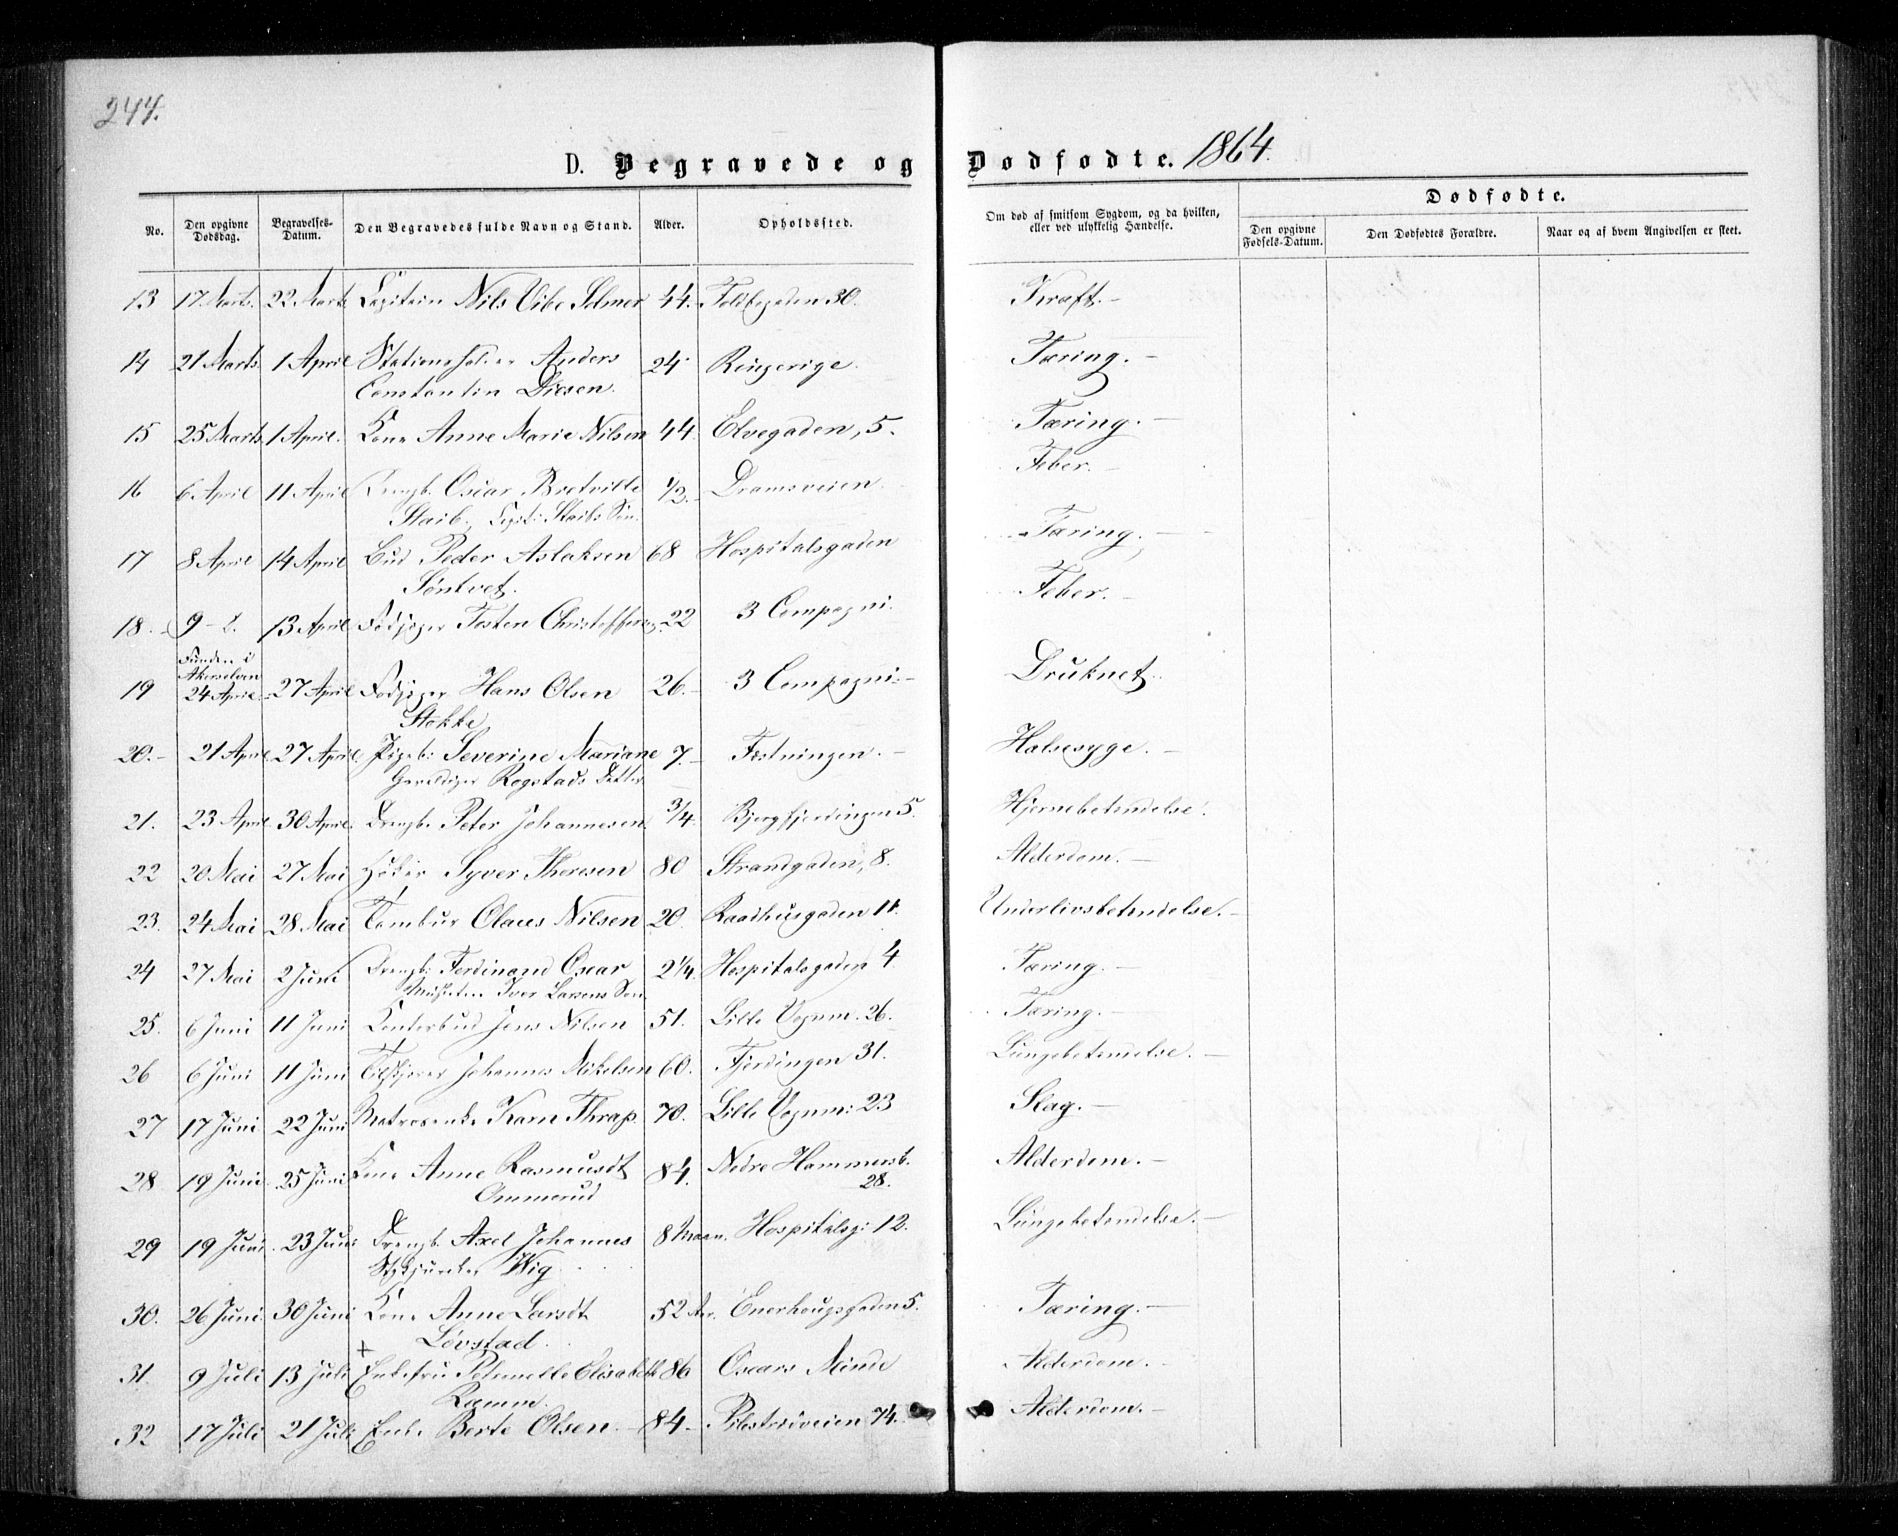 244.
D. Begravede og Dødfødte. 1864.
No. | Den opgivne Dødsdag. | Begravelses-Datum. | Den Begravedes fulde Navn og Stand. | Alder. | Opholdssted. | Om død af smitsom Sygdom, og da hvilken, eller ved ulykkelig Hændelse. | Dødfødte. | Den opgivne Fødsels-Datum. | Den Dødfødtes Forældre. | Naar og af hvem Angivelsen er skeet.
13 17 Marts. 22 Marts Capitain Nils Vibe Selmer 44. Toldbogaden 30. Kræft.
14 21 Marts. 1 April Anders 24 Ringerige. Tæring.
Constantin Diesen.
15 25 Marts 1 April. Kone Anne Marie Nilsen 44 Elvegaden, 5. Tæring.
16 6 April 11 April Drengb. Oscar Bretville 1/2. Dramsveien. Feber.
Staib. Capt: Staibs Søn.
17 8 April 14 April Bud Peder Aslaksen 68 Hospitalsgaden Tæring.
Søntvet.
18. 9 - d. 13 April Fodjæger Tosten 22 3 Compagni. Feber.
Funden i
Akerselven
19 24 April 27 April Fodjæger Hans Olsen 26. 3 Compagni. Druknet.
Stokke
20. 21 April 27 April Pigeb: Severine Mariane 7. Fæstningen. Halssyge.
Rogstads Datter
21. 23 April 30 April. Drengb. Peter Johannesen 3/4. Bjergfjerdingen 5. Hjernebetændelse.
22 20 Mai 27 Mai Høker Syver Thoresen 80 Strandgaden, 8. Alderdom.
23. 24 Mai 28 Mai Tambur Olaus Nilsen 20. Raadhusgaden 11. Underlivsbetændelse.
24 27 Mai 2 Juni Drengb: Ferdinand Oscar 2 1/4. Hospitalsgaden 4 Tæring.
Iver Larsens Søn
25. 6 Juni 11 Juni Contorbud Jens Nilsen 51. Lille Vognm. 26. Tæring.
26 6 Juni 11 Juni Johannes Mikelsen 60. Fjerdingen 31. Lungebetændelse.
27 17 Juni 22 Juni Matrosenke Karn Thrap 70. Lille Vognm: 23 Slag.
28 19 Juni 25 Juni Kone Anne Rasmusdt 84. Nedre Hammersb. Alderdom.
Ommerud 28.
29 19 Juni. 23 Juni Drengb. Axel Johannes 8 Maan. Hospitalsg: 12. Lungebetændelse.
Stykjunker Wig
30. 26 Juni. 30 Juni Kone Anne Larsdt 52 Aar. Enerhougsgaden 5. Tæring.
Løvstad.
31. 9 Juli 13 Juli Enkefru Peternelle Elisabeth 86 Oscars Minde Alderdom.
Ramm.
32 17 Juli 21 Juli Enke Berte Olsen 84 Pilestrædveien 74. Alderdom.